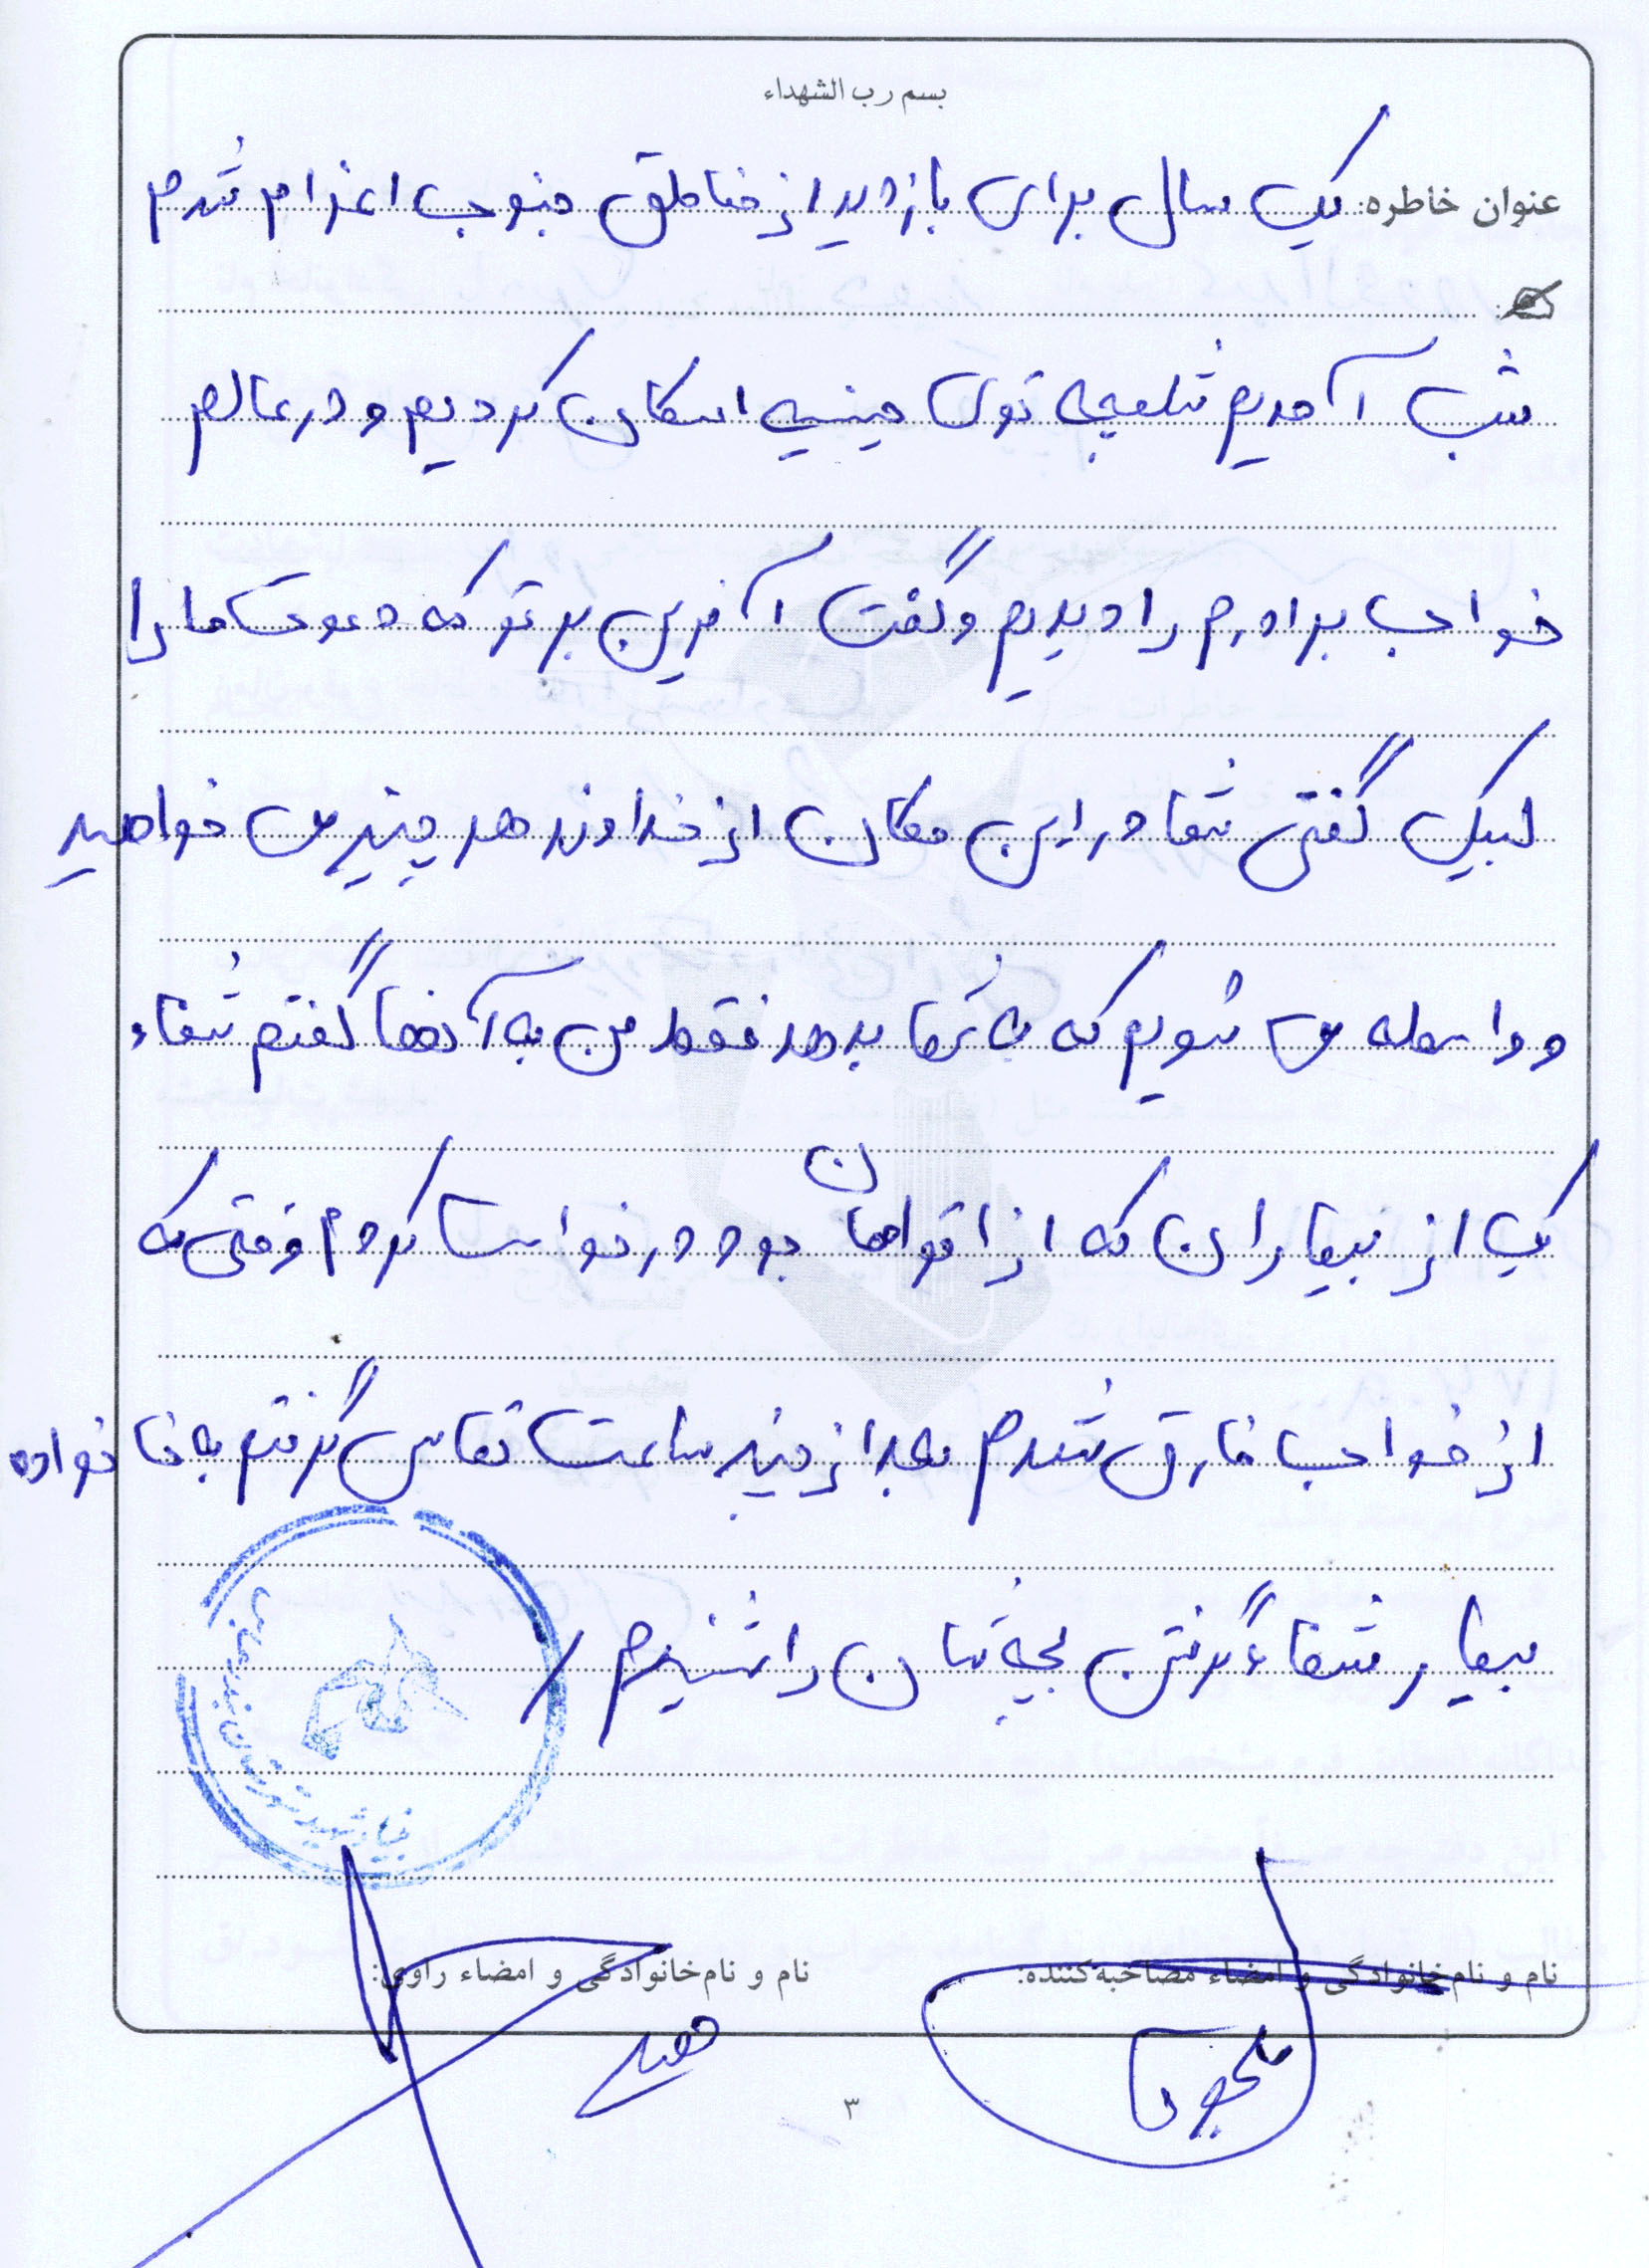 بسم رب الشهداء
عنوان خاطره: یک سال برای بازدید از مناطق جنوب اعزام شدم
شب آمدیم شلمچه توی حسینیه اسکان کردیم و در عالم
خواب برادرم را دیدیم و گفت آفرین بر تو که دعوت ما را
لبیک گفتی شما در این مکان از خداوند هر چیز می خواهید
و واسطه می شویم که به شما بدهد فقط من به آنها گفتم شفاء
یک از بیماران که از اقوامان بود درخواست کردم وقتی که
از خواب فارق شدم بعد از چند ساعت تماس گرفتم به خانواده
بیمار شفاء گرفتن بچه شان را شنیدم /
بنیاد شهید
نام و نام‌خانوادگی و امضاء مصاحبه‌کننده:
نام و نام‌خانوادگی و امضاء راوی:
۳